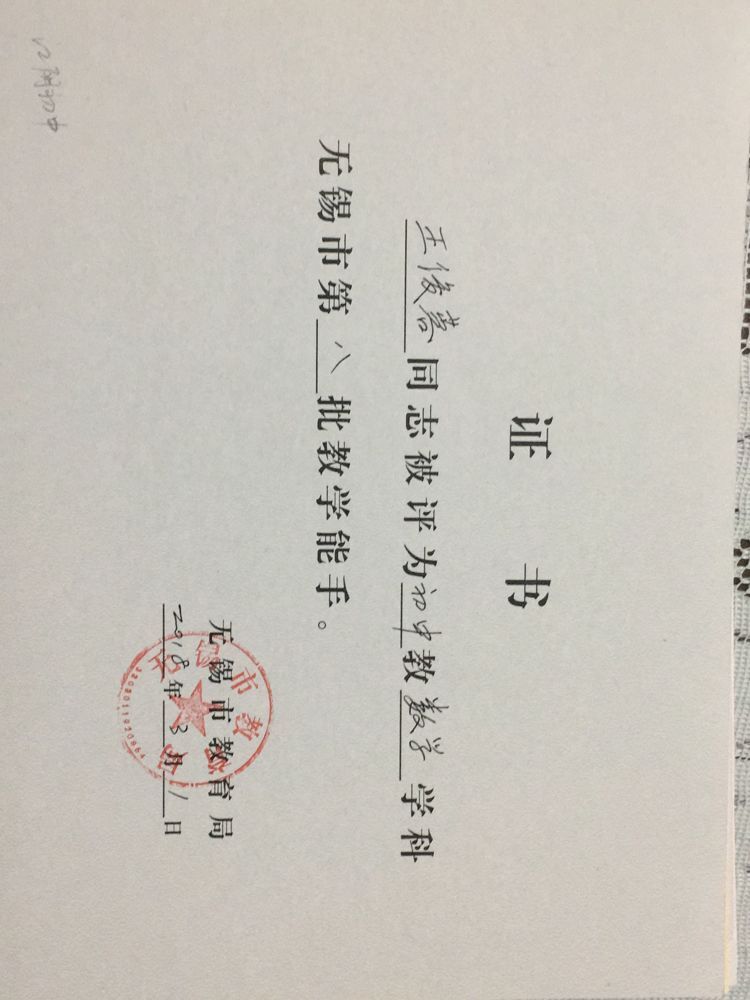 证 书
王俊蓉同志被评为初中教数学学科
无锡市第八批教学能手。
无锡市教育局
2018年3月1日